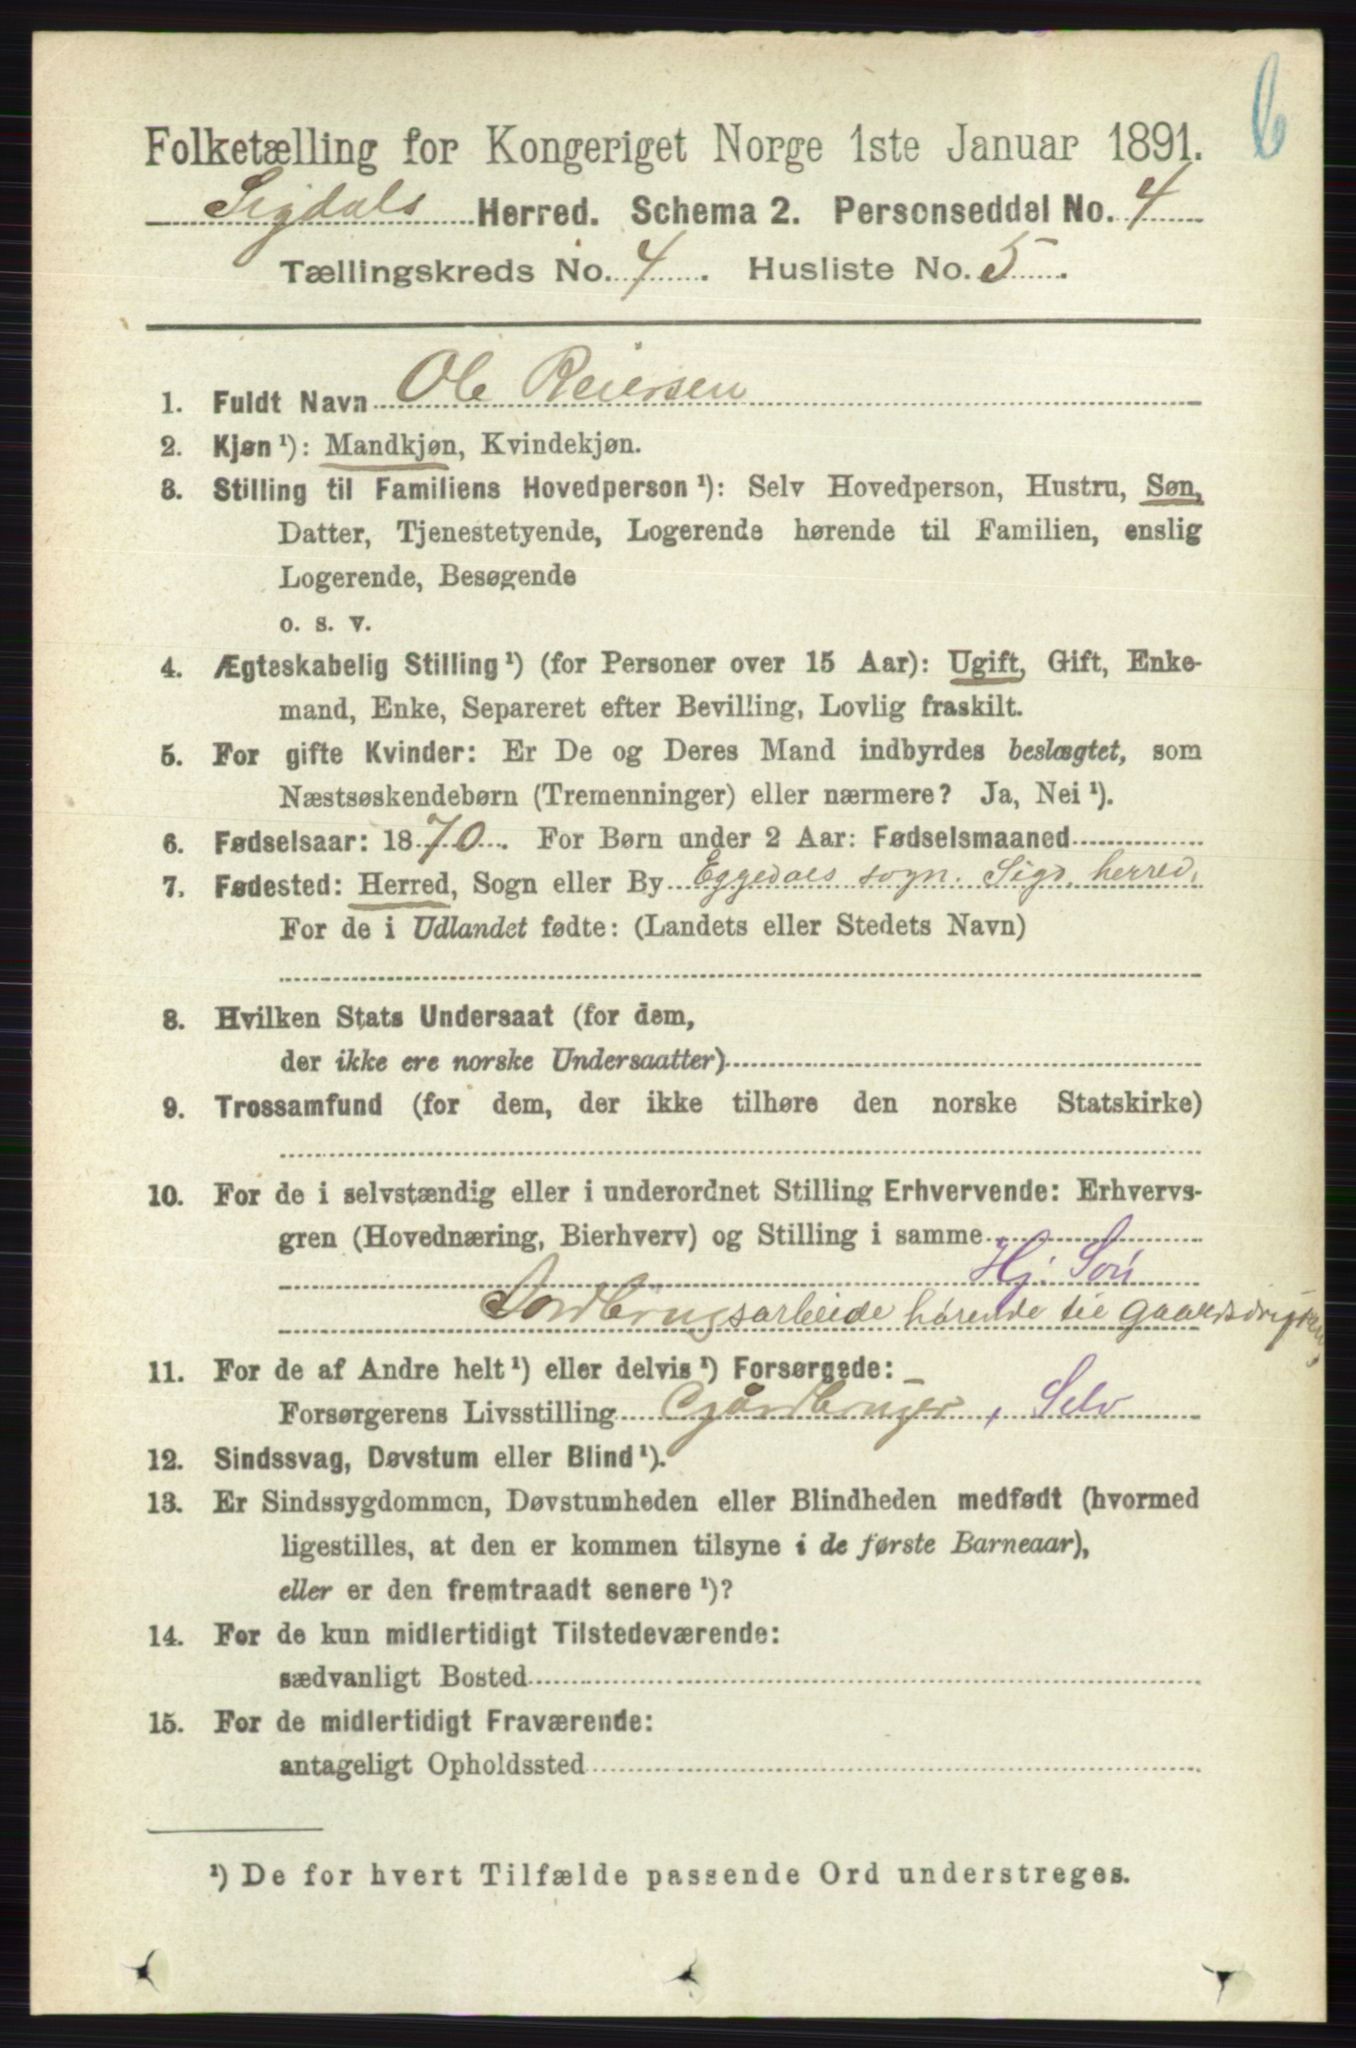 6
Folketælling for Kongeriget Norge 1ste Januar 1891.
Sigdals Herred. Schema 2. Personseddel No. 4
Tællingskreds No. 4. Husliste No. 5.
1. Fuldt Navn Ole Reiersen
2. Kjøn ¹): Mandkjøn, Kvindekjøn.
3. Stilling til Familiens Hovedperson ¹): Selv Hovedperson, Hustru, Søn,
Datter, Tjenestetyende, Logerende hørende til Familien, enslig
Logerende, Besøgende
o. s. v.
4. Ægteskabelig Stilling ¹) (for Personer over 15 Aar): Ugift, Gift, Enke-
mand, Enke, Separeret efter Bevilling, Lovlig fraskilt.
5. For gifte Kvinder: Er De og Deres Mand indbyrdes beslægtet, som
Næstsøskendebørn (Tremenninger) eller nærmere? Ja, Nei ¹).
6. Fødselsaar: 1870. For Børn under 2 Aar: Fødselsmaaned
7. Fødested: Herred, Sogn eller By Eggedals sogn. Sigd. herred.
For de i Udlandet fødte: (Landets eller Stedets Navn)
8. Hvilken Stats Undersaat (for dem,
der ikke ere norske Undersaatter)
9. Trossamfund (for dem, der ikke tilhøre den norske Statskirke)
10. For de i selvstændig eller i underordnet Stilling Erhvervende: Erhvervs-
gren (Hovednæring, Bierhverv) og Stilling i samme
Hj. Søn
Jordbrugsarbeide hørende til Gaardsdriften,
11. For de af Andre helt ¹) eller delvis ¹) Forsørgede:
Forsørgerens Livsstilling Gårdbruger, Selv
12. Sindssvag, Døvstum eller Blind ¹).
13. Er Sindssygdommen, Døvstumheden eller Blindheden medfødt (hvormed
ligestilles, at den er kommen tilsyne i de første Barneaar),
eller er den fremtraadt senere ¹)?
14. For de kun midlertidigt Tilstedeværende:
sædvanligt Bosted
15. For de midlertidigt Fraværende:
antageligt Opholdssted
¹) De for hvert Tilfælde passende Ord understreges.